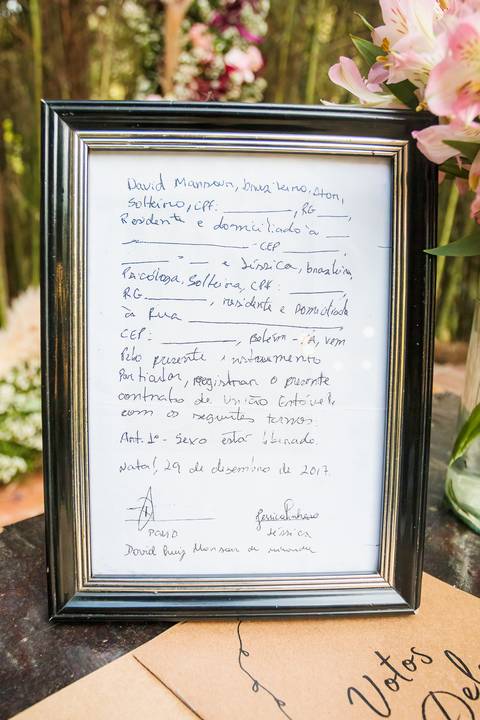 David Mansour, brasileiro, Ator,
Solteiro, CPF: ________, RG ____,
Residente e domiciliado à ___
____________ - CEP ______,
_____ - __ e Jéssica, brasileira,
Psicóloga, Solteira, CPF: ______,
RG ______, residente e domiciliada
à Rua ________________,
CEP: ________, Belém - PA, vem
Pelo presente instrumento
Particular, registrar o presente
contrato de União Estável
com os seguintes termos.
Art. 1º - Sexo está liberado.
Natal, 29 de dezembro de 2017.
Jessica Pinheiro
DAVID
Jéssica
David Ruiz Mansour de
Votos
Dela